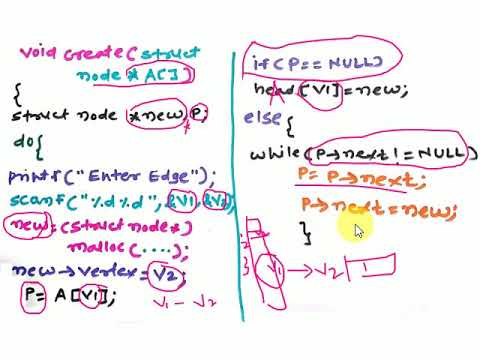 void create( struct
node *A[])
{
struct node *new, P;
*
do{
printf("Enter Edge");
scanf("%d%d", &V1, &V2);
new=(struct node*)
malloc(....);
new→vertex=V2;
P= A[V1];
V1 - V2
if(P==NULL)
head[V1]=new;
A
else{
while(P→next!=NULL)
P= P→next;
P→next=new;
}
1
2
3
V1 → V2